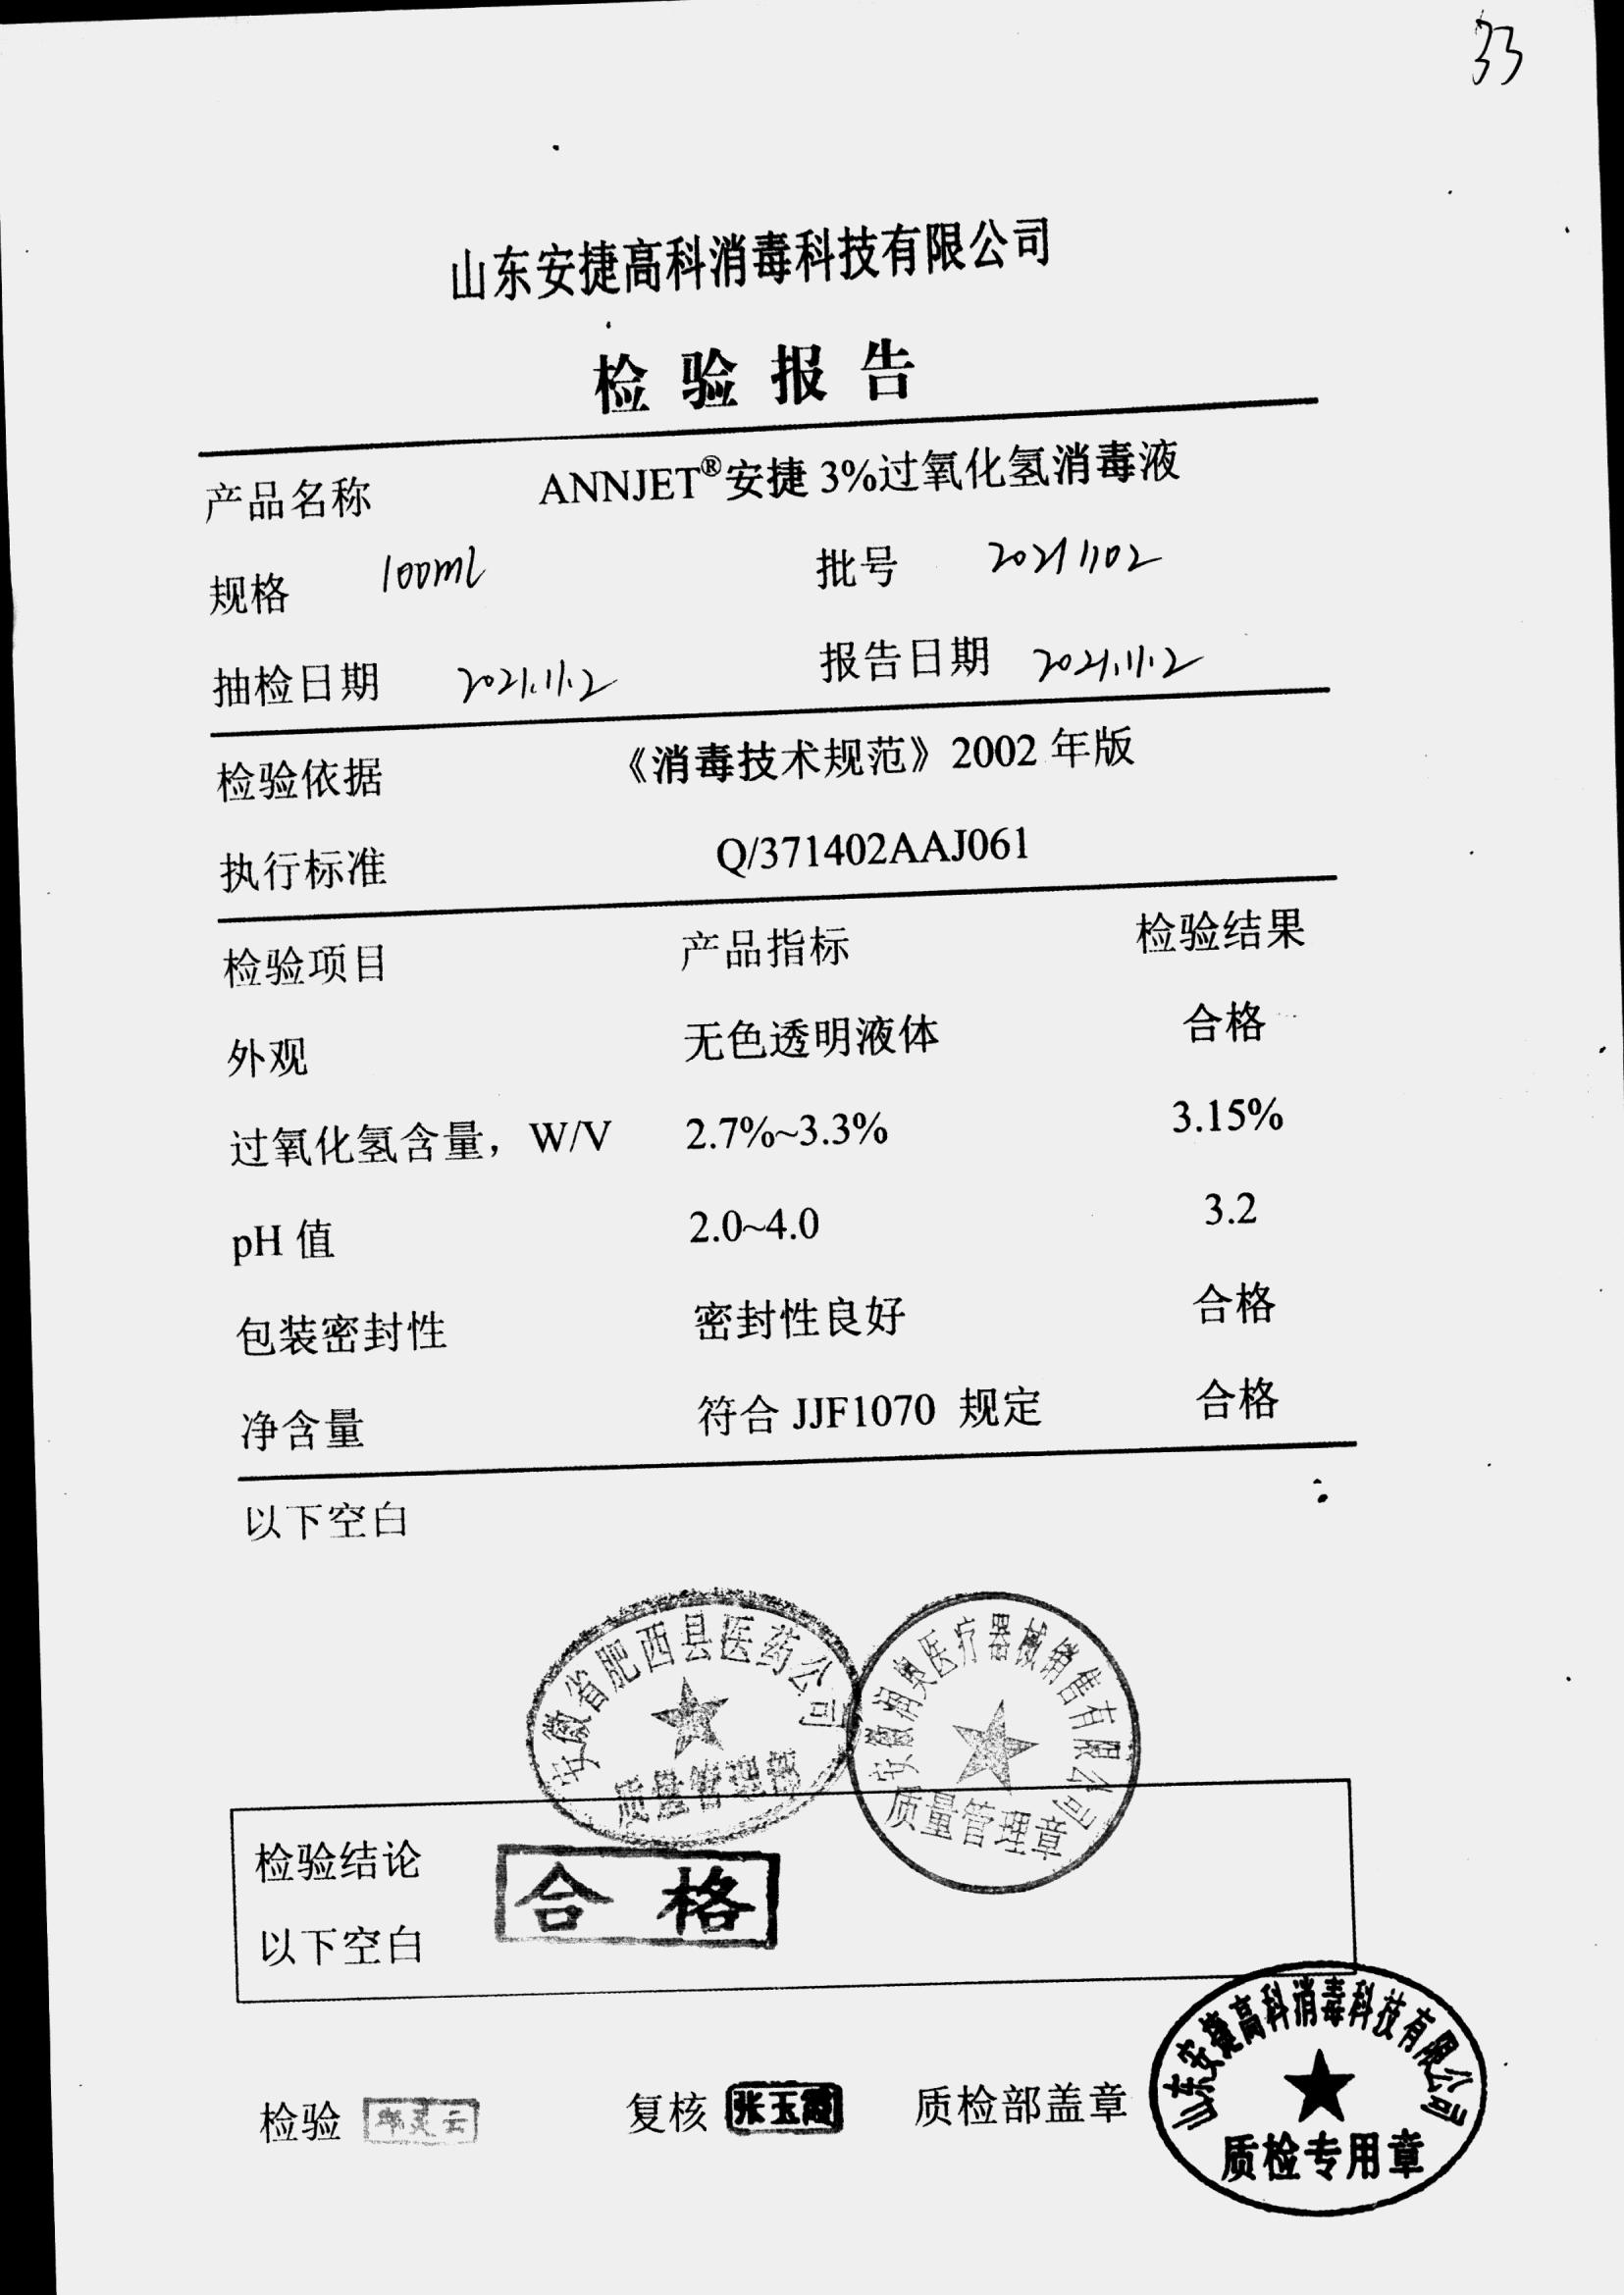 33
山东安捷高科消毒科技有限公司
检验报告
产品名称 ANNJET®安捷 3%过氧化氢消毒液
规格 100ml 批号 20211102
抽检日期 2021.11.2 报告日期 2021.11.2
检验依据 《消毒技术规范》2002 年版
执行标准 Q/371402AAJ061
检验项目 产品指标 检验结果
外观 无色透明液体 合格
过氧化氢含量，W/V 2.7%~3.3% 3.15%
pH 值 2.0~4.0 3.2
包装密封性 密封性良好 合格
净含量 符合 JJF1070 规定 合格
以下空白
安徽省肥西县医药公司
质量管理部
安徽润奥医疗器械销售有限公司
质量管理章
检验结论 合格
以下空白
检验 复核 张玉霞 质检部盖章
山东安捷高科消毒科技有限公司
质检专用章